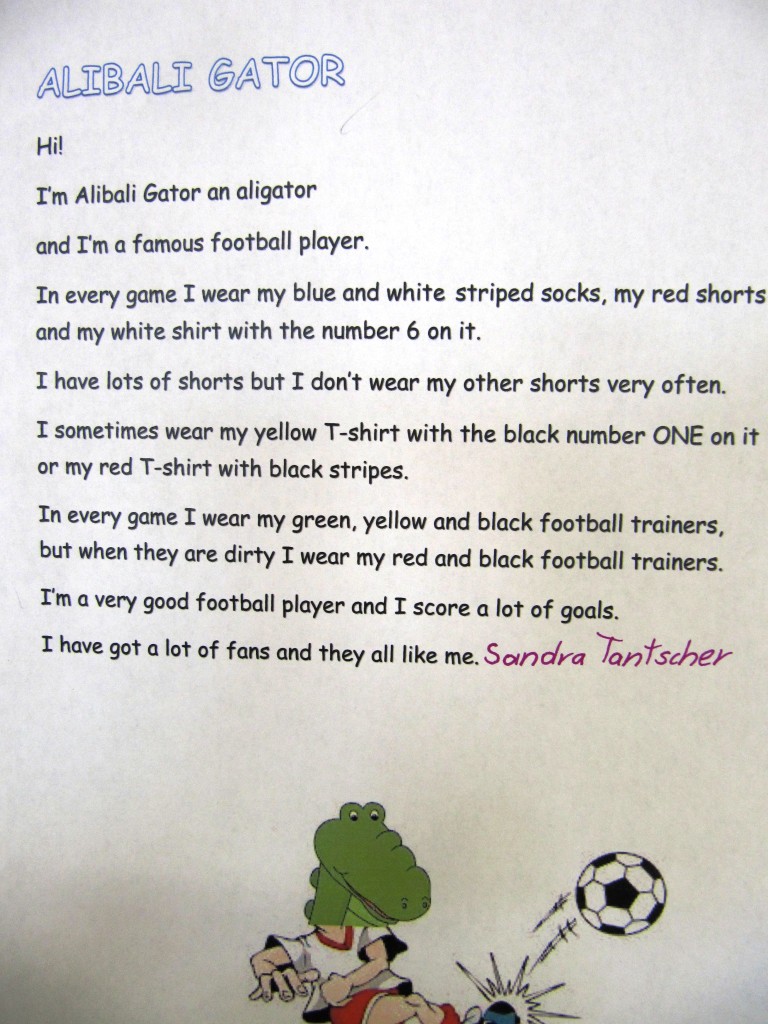 ALIBALI GATOR
Hi!
I'm Alibali Gator an aligator
and I'm a famous football player.
In every game I wear my blue and white striped socks, my red shorts
and my white shirt with the number 6 on it.
I have lots of shorts but I don't wear my other shorts very often.
I sometimes wear my yellow T-shirt with the black number ONE on it
or my red T-shirt with black stripes.
In every game I wear my green, yellow and black football trainers,
but when they are dirty I wear my red and black football trainers.
I'm a very good football player and I score a lot of goals.
I have got a lot of fans and they all like me. Sandra Tantscher